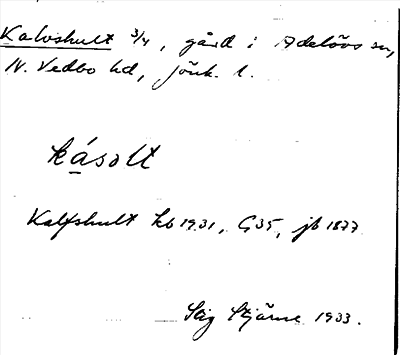 Kalvshult 3/4, gård i Adelövs sn,
N. Vedbo hd, Jönk. l.
kásolt
Kalfshult hb 1931, G35, jb 1877
Stig Stjärne 1933.